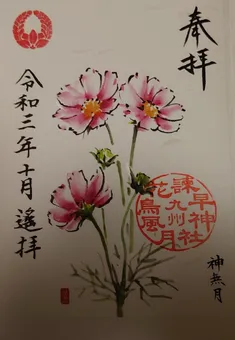 奉拝
諫早神社
九州
花鳥風月
神無月
令和三年十月遙拝